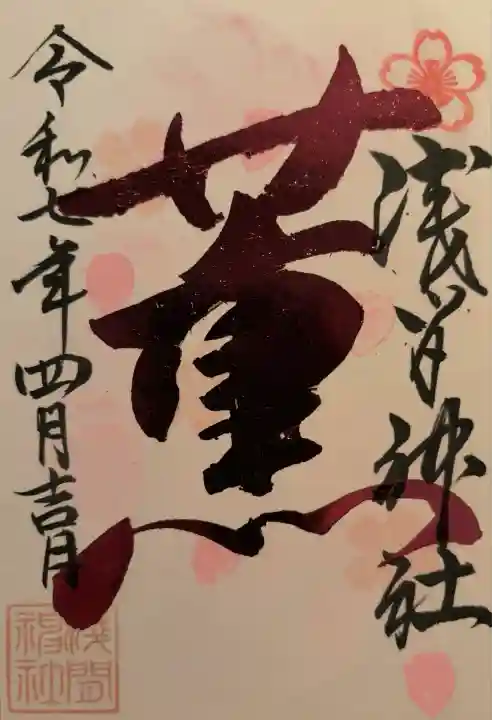 浅间神社
薫
令和七年四月吉日
浅間神社